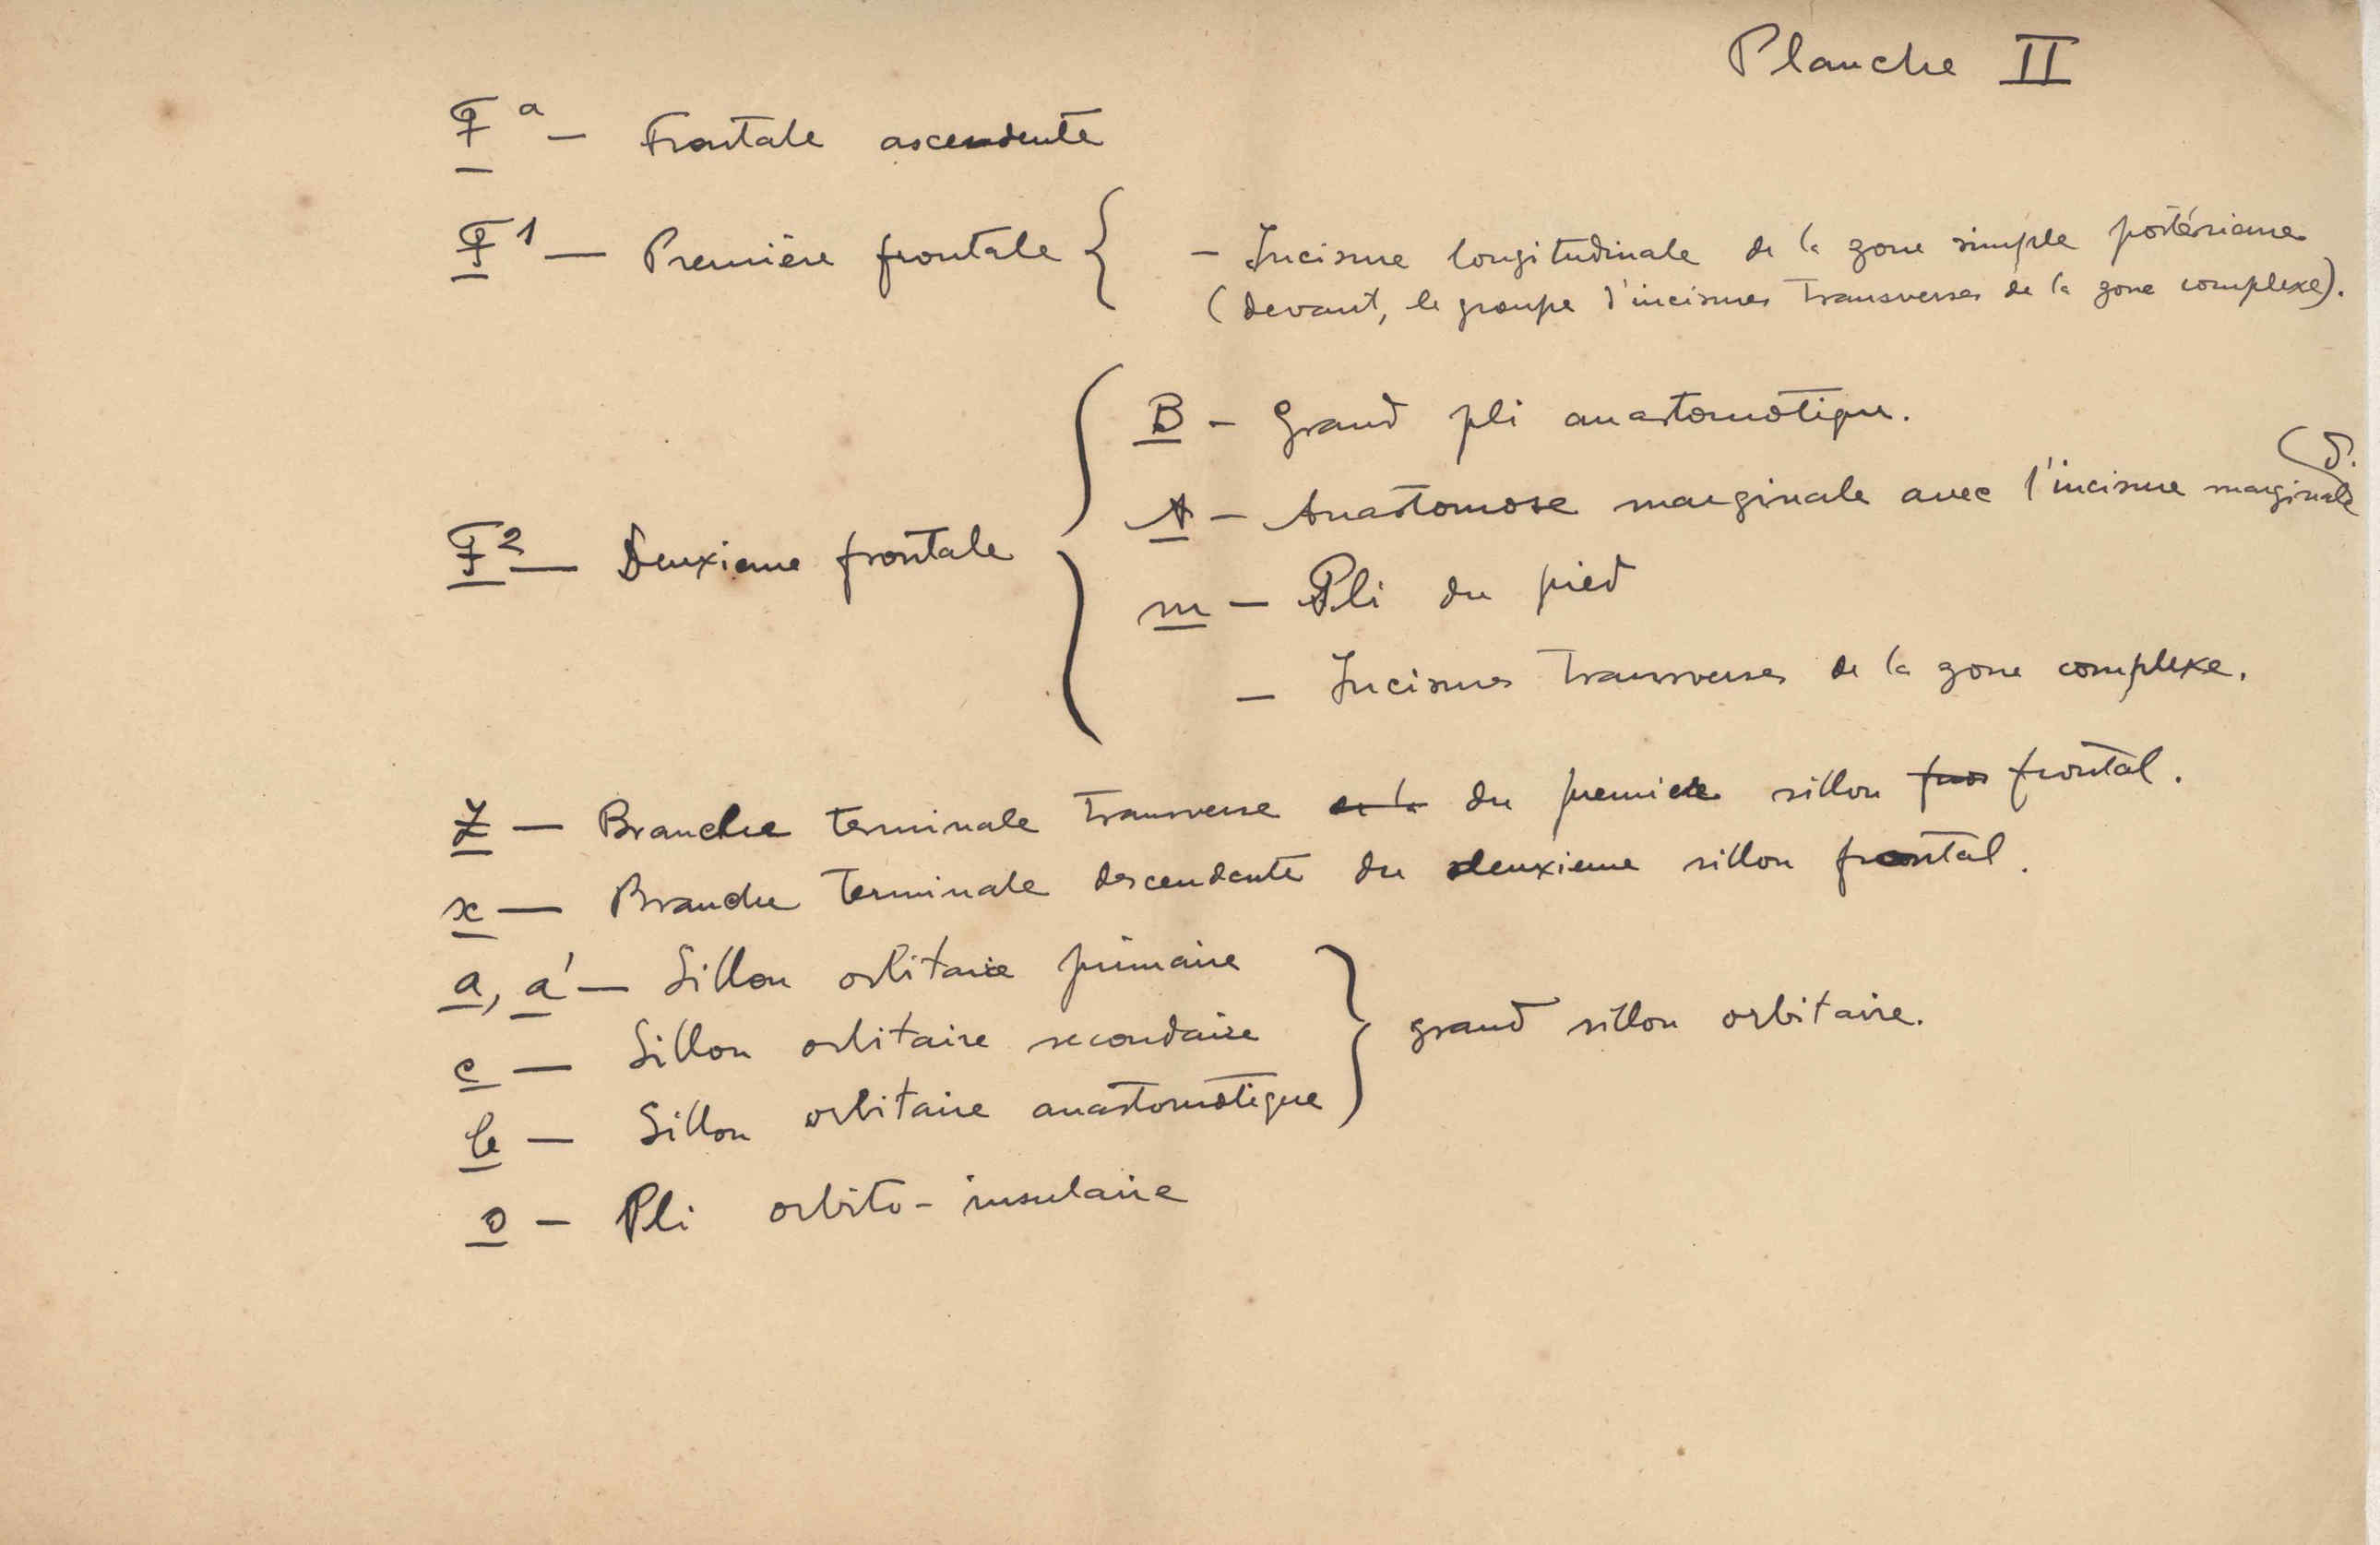 Planche II
F a — Frontale ascendente
F 1 — Première frontale { — Incisure longitudinale de la zone simple postérieure
(devant, le groupe d'incisures transverses de la zone complexe).
B — Grand pli anastomotique.
A — Anastomose marginale avec l'incisure marginale (d.
F 2 — Deuxieme frontale
m — Pli du pied
— Incisures transverses de la zone complexe.
Z — Branche terminale transverse de la du premier sillon fron frontal.
x — Branche terminale descendente du deuxieme sillon frontal.
a, a' — Sillon orbitaire primaire
c — Sillon orbitaire secondaire } grand sillon orbitaire.
b — Sillon orbitaire anastomotique
o — Pli orbito-insulaire